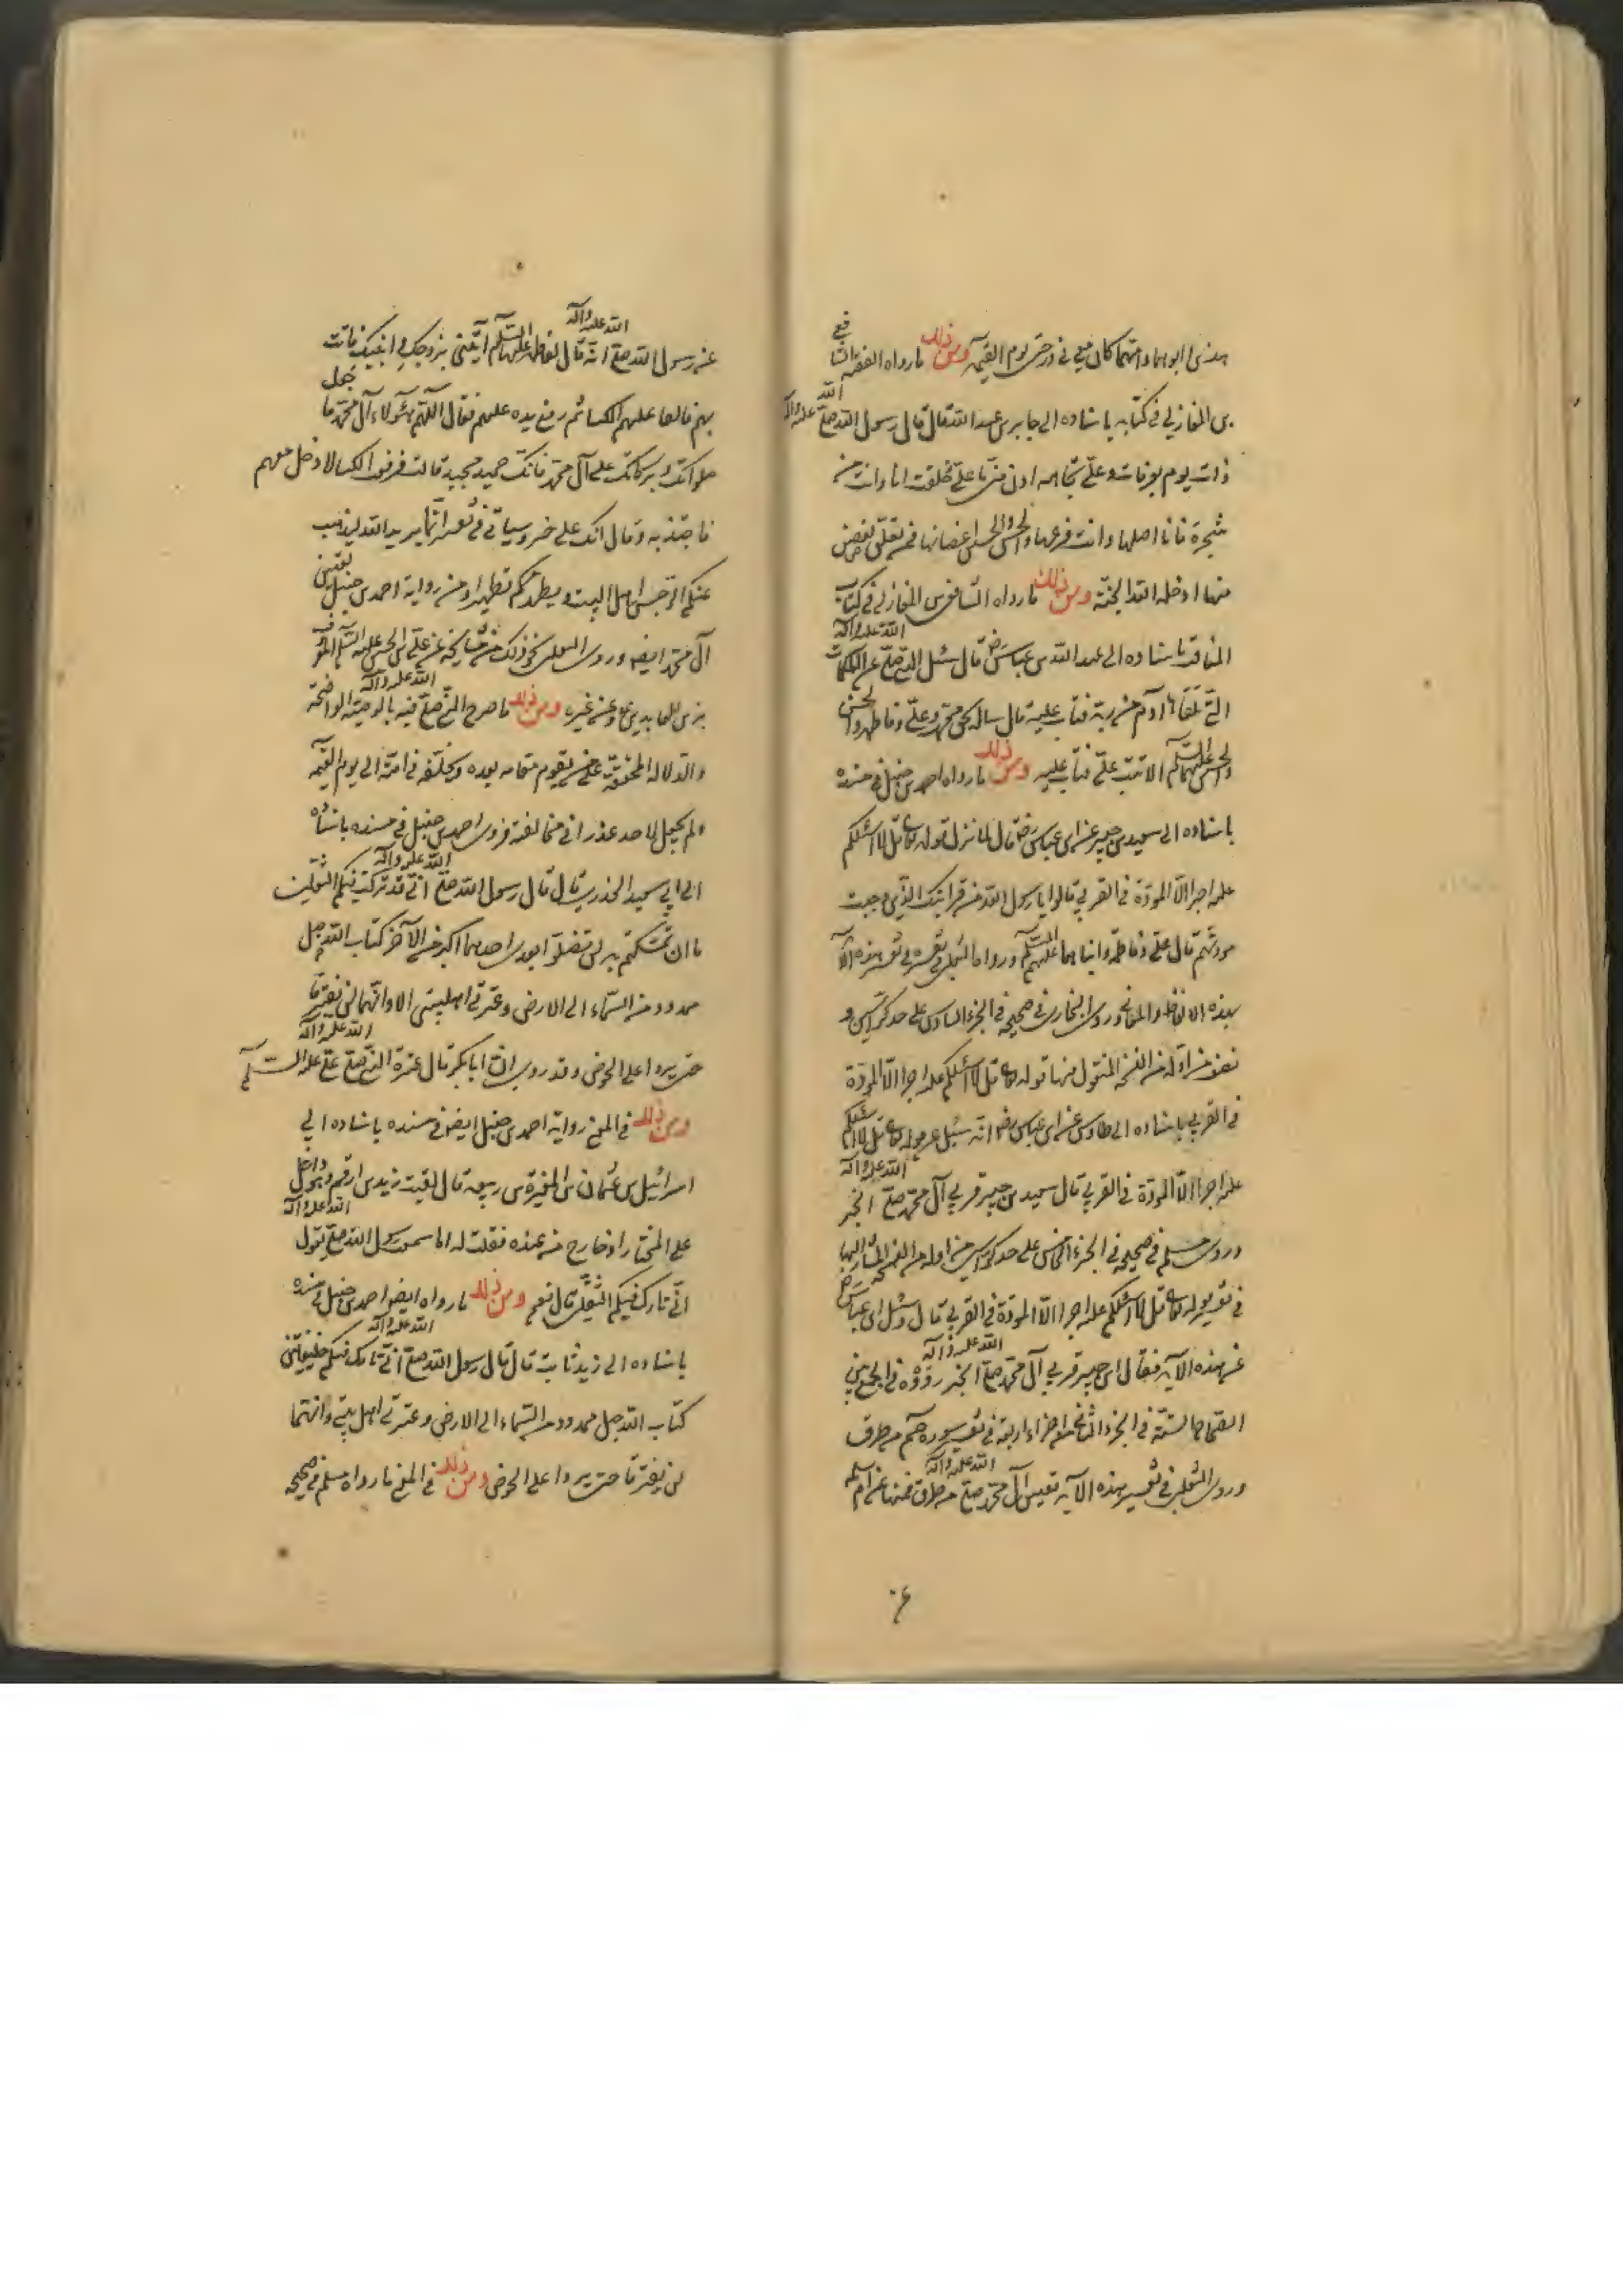 هذين وابوهما وامهما كان معي في درجتي يوم القيمة ومن ذلك ما رواه الفقيه الشافعي
بن المغازلي في كتابه باسناده الى جابر بن عبد الله قال قال رسول الله صلى الله عليه واله
ذات يوم بعرفات وعلي تجاهه ادن مني يا علي خلقت انا وانت من
شجرة فانا اصلها وانت فرعها والحسن والحسين اغصانها فمن تعلق بغصن
منها ادخله الله الجنة ومن ذلك ما رواه الشافعي بن المغازلي في كتاب
المناقب باسناده الى عبد الله بن عباس رض قال سئل النبي صلى الله عليه واله عن الكلمات
التي تلقاها آدم من ربه فتاب عليه قال ساله بحق محمد وعلي وفاطمة والحسن
والحسين عليهما السلم الا تبت علي فتاب عليه ومن ذلك ما رواه احمد بن حنبل في مسنده
باسناده الى سعيد بن جبير عن ابن عباس رض قال لما نزل قوله تعا قل لا اسئلكم
عليه اجرا الا المودة في القربى قالوا يا رسول الله من قرابتك الذي وجبت
مودتهم قال علي وفاطمة وابناهما عليهم السلم ورواه الثعلبي في تفسيره في تفسير هذه الآية
بهذه الالفاظ والمعاني وروى البخاري في صحيحه في الجزء السادس على حد كراسين و
نصف من اوله من النسخة المنقول منها قوله تعا قل لا اسئلكم عليه اجرا الا المودة
في القربى باسناده الى طاوس عن ابن عباس رض انه سئل عن قوله تعا قل لا اسئلكم
عليه اجرا الا المودة في القربى قال سعيد بن جبير قربى آل محمد صلى الله عليه واله الخبر
وروى مسلم في صحيحه في الجزء الخامس على حد كراسين من اوله من النسخة المشار اليها
في تفسير قوله تعا قل لا اسئلكم عليه اجرا الا المودة في القربى قال وسئل ابن عباس رض
عن هذه الآية فقال ابن جبير قربى آل محمد صلى الله عليه واله الخبر رووه في الجمع بين
الصحاح الستة في الجزء الثاني من اجزاء اربعة في تفسير سورة حم من طرق
وروى الثعلبي في تفسير هذه الآية تعيين آل محمد صلى الله عليه واله من طرق فمنها عن ام سلمه
ع
عن رسول الله صلى الله عليه واله انه قال لفاطمة عليها السلم ايتيني بزوجك وابنيك فاتت
بهم فالقا عليهم الكسا ثم رفع يده عليهم فقال اللهم هؤلاء آل محمد فاجعل
صلواتك وبركاتك على آل محمد فانك حميد مجيد قالت فرفعت الكسا لادخل معهم
فاجتذبه وقال انك على خير وسياتي في تفسير انما يريد الله ليذهب
عنكم الرجس اهل البيت ويطهركم تطهيرا ومن رواية احمد بن حنبل تعيين
آل محمد ايضا وروى الثعلبي نحو ذلك من مشايخه عن علي بن الحسين عليه السلم المعروف
بزين العابدين ع وعن غيره ومن ذلك ما صرح النبي صلى الله عليه واله فيه بالوصية الواضحة
والدلالة المحققة على من يقوم مقامه بعده ويخلفه في امته الى يوم القيمة
ولم يجعل لاحد عذرا في مخالفته فروى احمد بن حنبل في مسنده باسناده
الى ابي سعيد الخدري قال قال رسول الله صلى الله عليه واله اني قد تركت فيكم الثقلين
ما ان تمسكتم به لن تضلوا بعدي احدهما اكبر من الآخر كتاب الله حبل
ممدود من السماء الى الارض وعترتي اهلبيتي الا وانهما لن يفترقا
حتى يردا على الحوض وقد روى ان ابا بكر قال عترة النبي صلى الله عليه واله علي عليه السلم
ومن ذلك في المعنى رواية احمد بن حنبل ايضا في مسنده باسناده الى
اسرائيل بن عثمان بن المغيرة بن ربيعه قال لقيت زيد بن ارقم وهو داخل
على المختار او خارج من عنده فقلت له اما سمعت رسول الله صلى الله عليه واله يقول
اني تارك فيكم الثقلين قال نعم ومن ذلك ما رواه ايضا احمد بن حنبل في مسنده
باسناده الى زيد ثابت قال قال رسول الله صلى الله عليه واله اني تارك فيكم خليفتين
كتاب الله حبل ممدود من السماء الى الارض وعترتي اهل بيتي وانهما
لن يفترقا حتى يردا على الحوض ومن ذلك في المعنى ما رواه مسلم في صحيحه